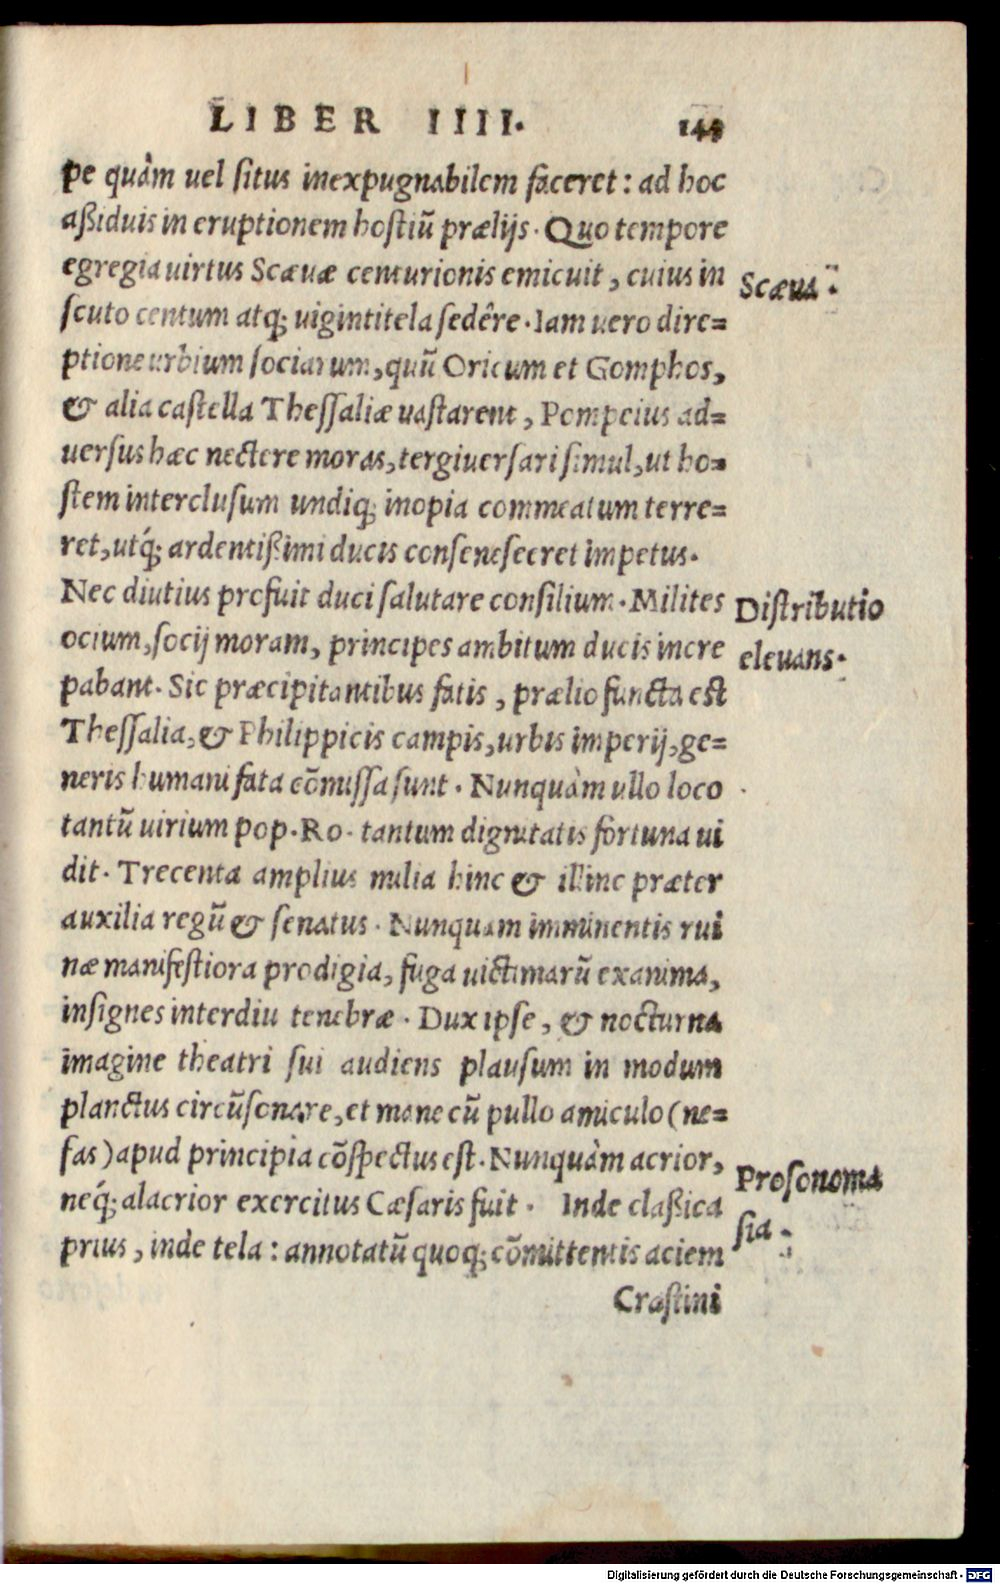 LIBER IIII.
pe quàm uel ſitus inexpugnabilem faceret: ad hoc
aßiduis in eruptionem hoſtiũ prælijs. Quo tempore
egregia uirtus Scæuæ centurionis emicuit, cuius in
Scæua.
ſcuto centum atq; uigintitela ſedêre. Iam uero dire=
ptione urbium ſociarum, quũ Oricum et Gomphos,
& alia caſtella Theſſaliæ uaſtarent, Pompeius ad=
uerſus hæc nectere moras, tergiuerſari ſimul, ut ho=
ſtem intercluſum undiq; inopia commeatum terre=
ret, utq́; ardentißimi ducis conſeneſceret impetus.
Nec diutius profuit duci ſalutare conſilium. Milites
Diſtributio
ocium, ſocij moram, principes ambitum ducis incre
eleuans.
pabant. Sic præcipitantibus fatis, prælio functa est
Theſſalia, & Philippicis campis, urbis imperij, ge=
neris humani fata cõmiſſa ſunt. Nunquàm ullo loco
tantũ uirium pop. Ro. tantum dignitatis fortuna ui
dit. Trecenta amplius milia hinc & illinc præter
auxilia regũ & ſenatus. Nunquam imminentis rui
næ manifeſtiora prodigia, fuga uictimarũ exanima,
inſignes interdiu tenebræ. Dux ipſe, & nocturna
imagine theatri ſui audiens plauſum in modum
planctus circũſonare, et mane cũ pullo amiculo (ne=
fas) apud principia cõſpectus eſt. Nunquàm acrior,
Proſonoma
neq́; alacrior exercitus Cæſaris fuit. Inde claßica
ſia.
prius, inde tela: annotatũ quoq; cõmittentis aciem
Craſtini
Digitalisierung gefördert durch die Deutsche Forschungsgemeinschaft - DFG